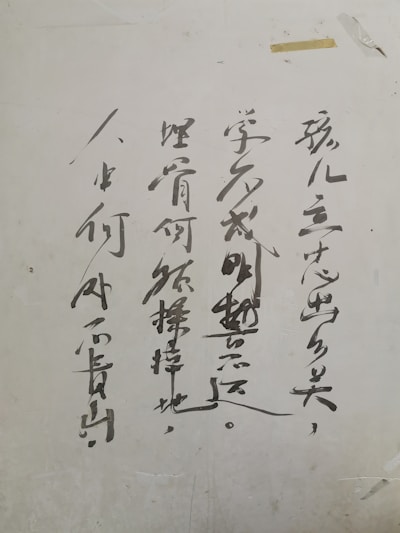 孩儿立志出乡关，
学不成明誓不还。
埋骨何须桑梓地，
人生何处不青山。